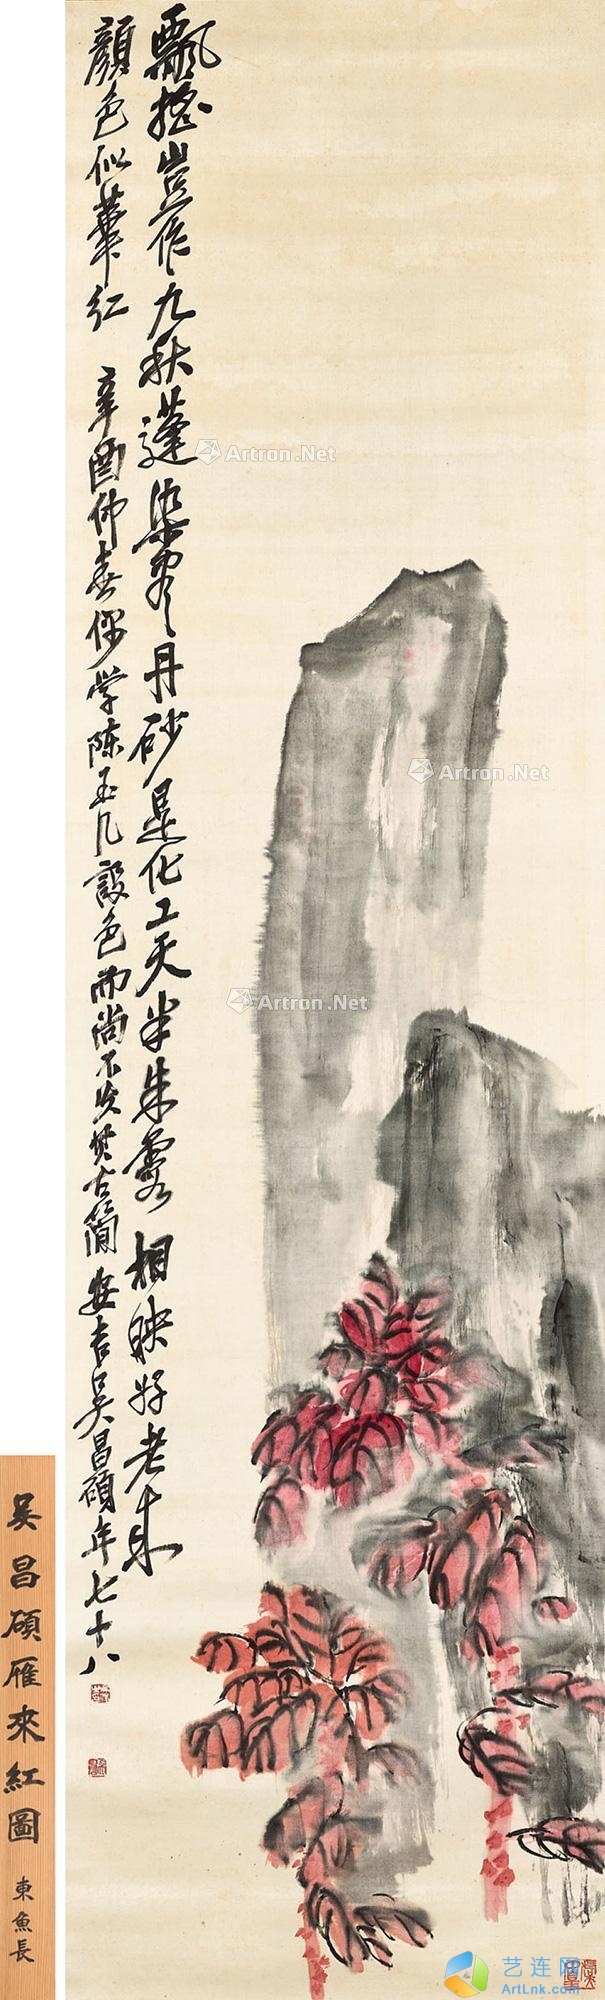 飄摇豈作九秋蓬染霱丹砂是化工天半朱霞相映好老来
顏色似華紅
辛酉仲春仿學陈玉几設色而尚不失其古簡安吉吴昌碩年七十八
吴昌碩雁來紅圖
東魚長
Artron.Net
Artron.Net
Artron.Net
艺连网
ArtLnk.com